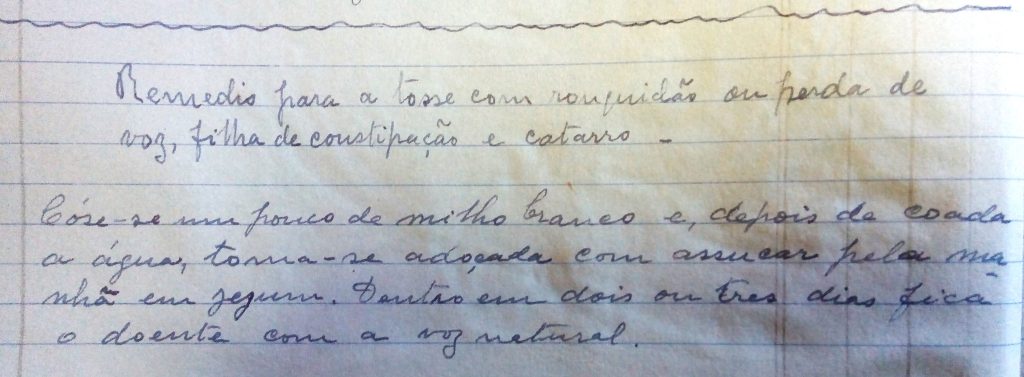 Remedio para a tosse com rouquidão ou perda de
voz, filha de constipação e catarro -
Cóse-se um pouco de milho branco e, depois de coada
a água, toma-se adoçada com assucar pela ma-
nhã em jejum. Dentro em dois ou tres dias fica
o doente com a voz natural.